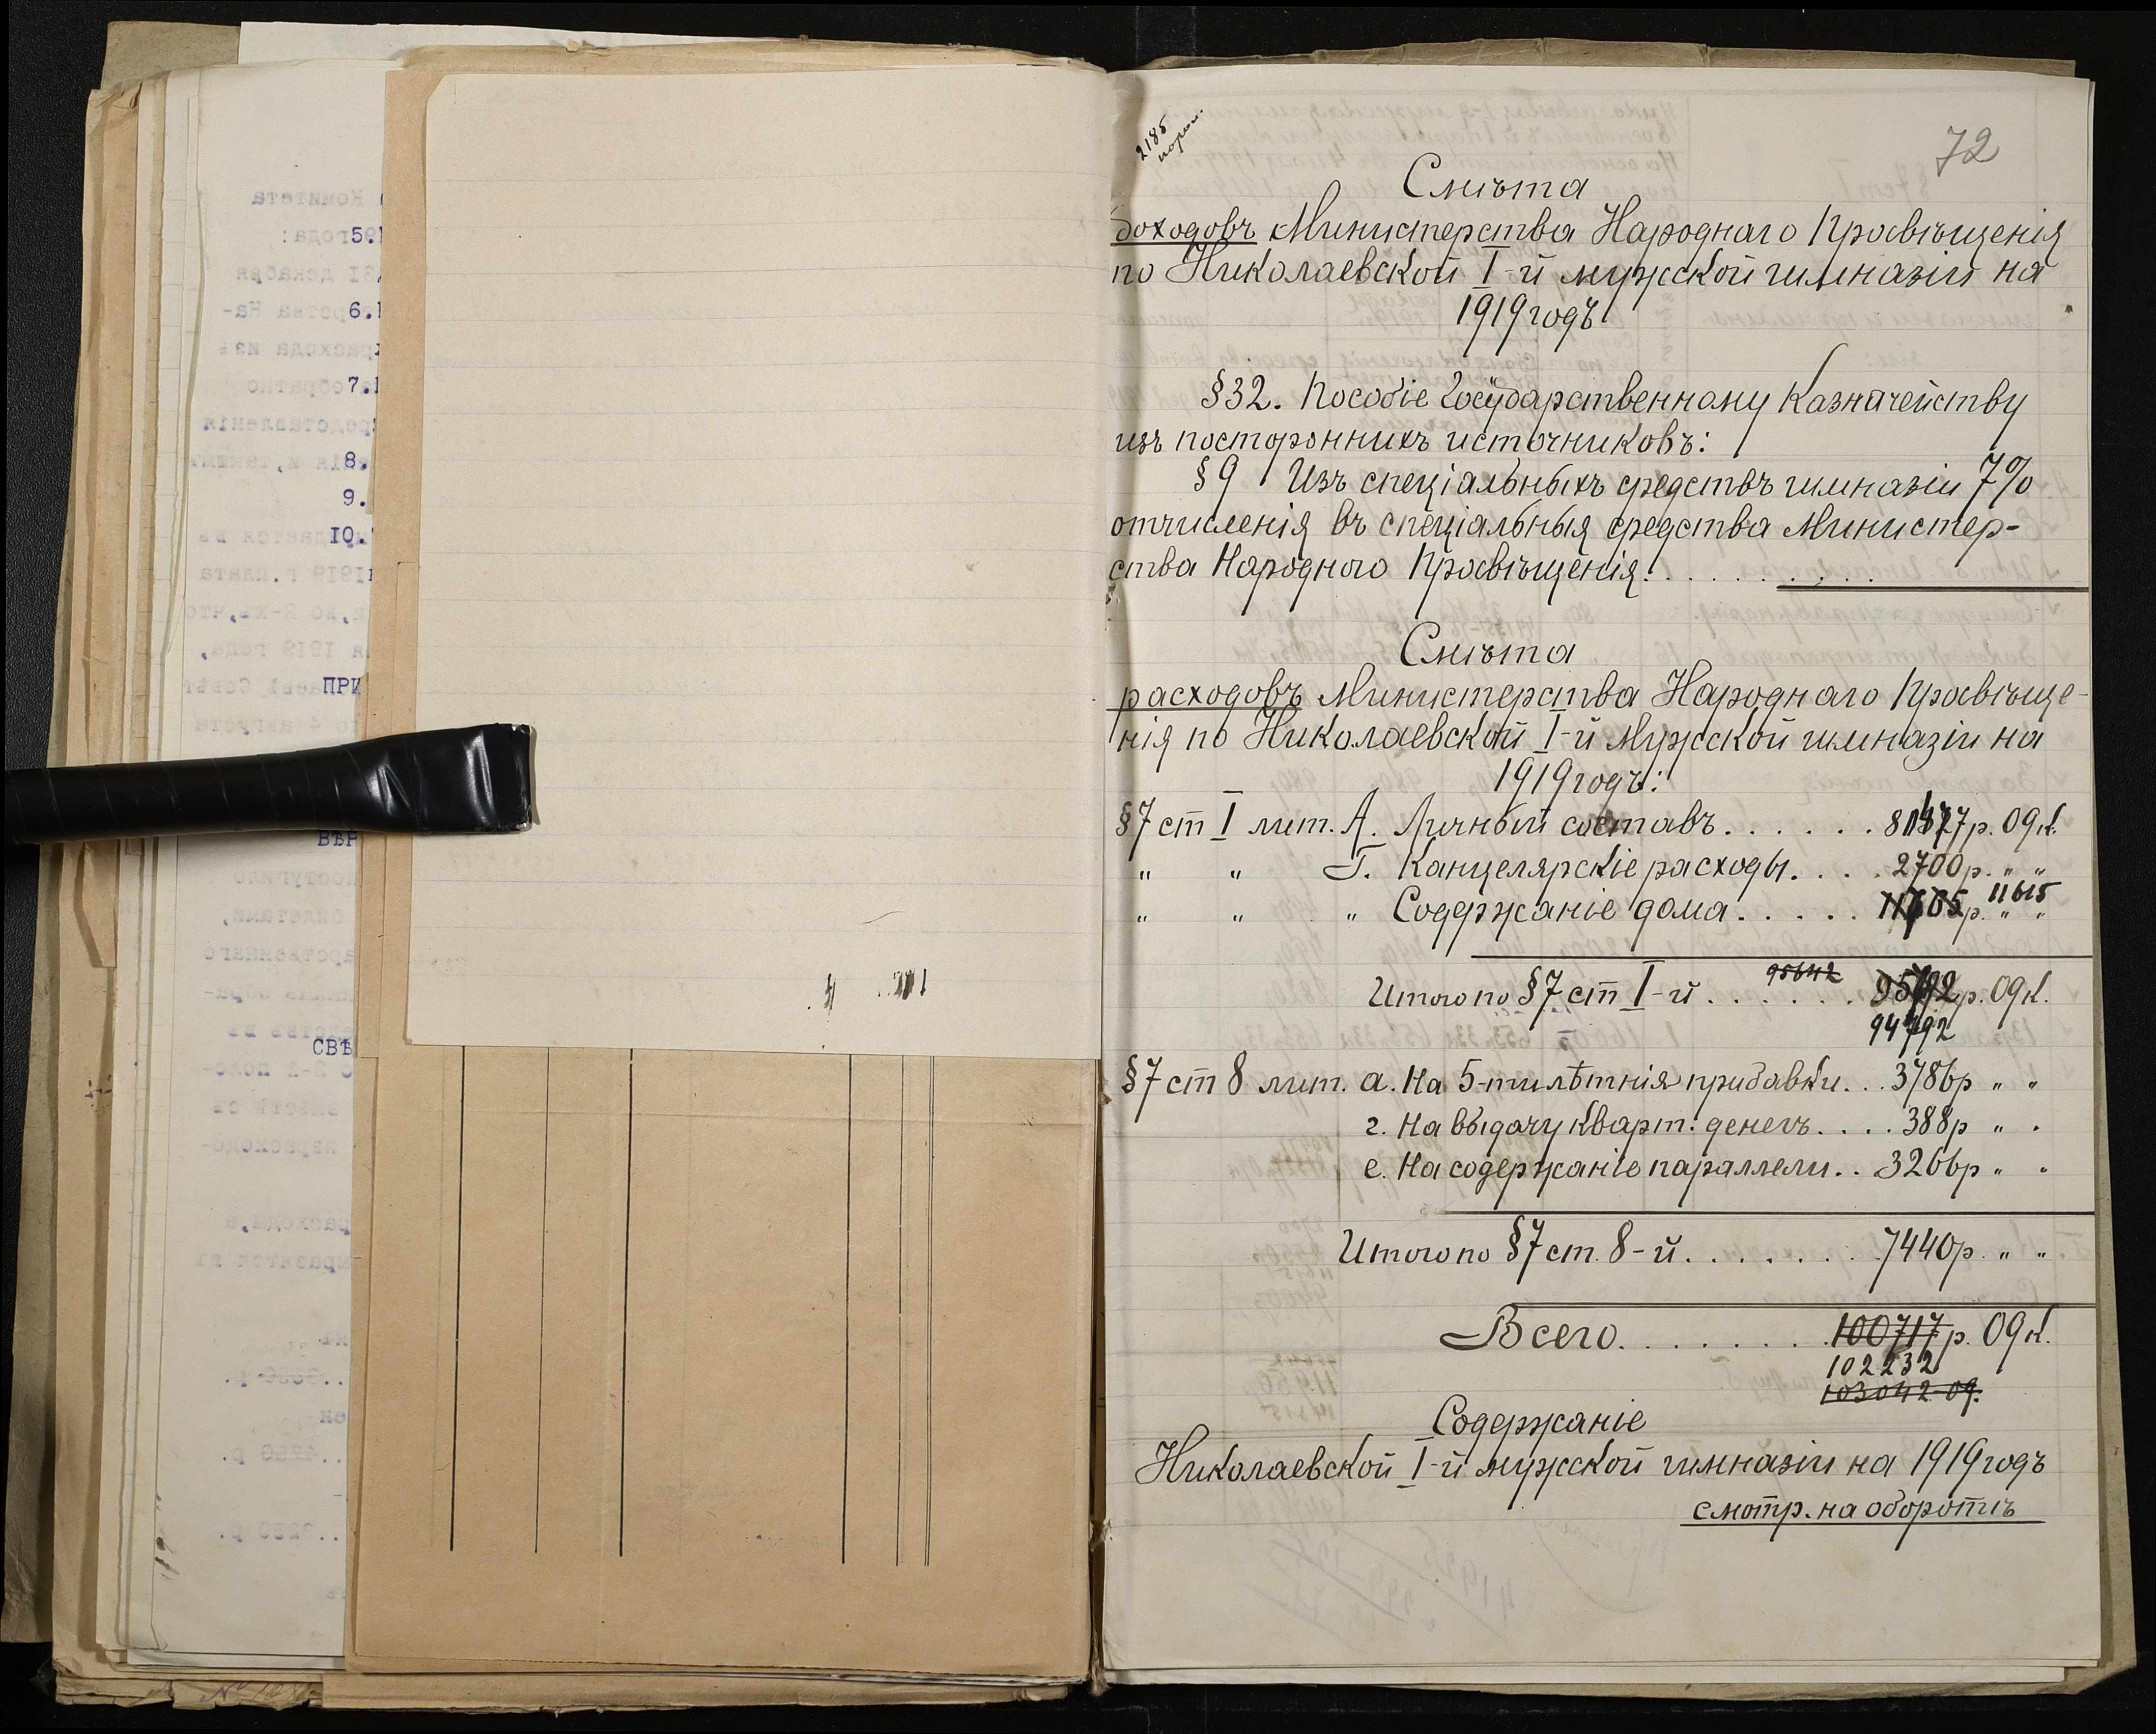 72
Смѣта
доходовъ Министерства Народнаго Просвѣщенія
по Николаевской I-й мужской гимназіи на
1919 годъ
§32. Пособіе Государственному Казначейству
изъ постороннихъ источниковъ:
§9 Изъ спеціальныхъ средствъ гимназіи 7%
отчисленія въ спеціальныя средства Министер-
ства Народного Просвѣщенія: . . . . . . . . .
Смѣта
расходовъ Министерства Народнаго Просвѣще-
нія по Николаевской I-й мужской гимназіи на
1919 годъ:
§7 ст I лит. А. Личный составъ. . . . . . р. 09 к.
" " Г. Канцелярскіе расходы. . . . 2700 р. " "
" " " Содержаніе дома. . . . . р. 11615 " "
Итого по §7 ст I-й. . . . . . 95642 р. 09 к.
§7 ст 8 лит. а. На 5-тилѣтнія прибавки. . . 3786 р " "
г. На выдачу кварт: денегъ. . . . 388 р " "
е. На содержаніе параллели. . 3266 р " "
Итого по §7 ст. 8-й. . . . . . . . 7440 р. " "
Всего. . . . . . . . 100717 р. 09 к.
102232
103042-09.
Содержаніе
Николаевской I-й мужской гимназіи на 1919 годъ
смотр. на оборотѣ
Комитета
5.
года:
31 декабря
6.
7.
8.
9.
10.
ПРИ
ВѢР
СВѢ